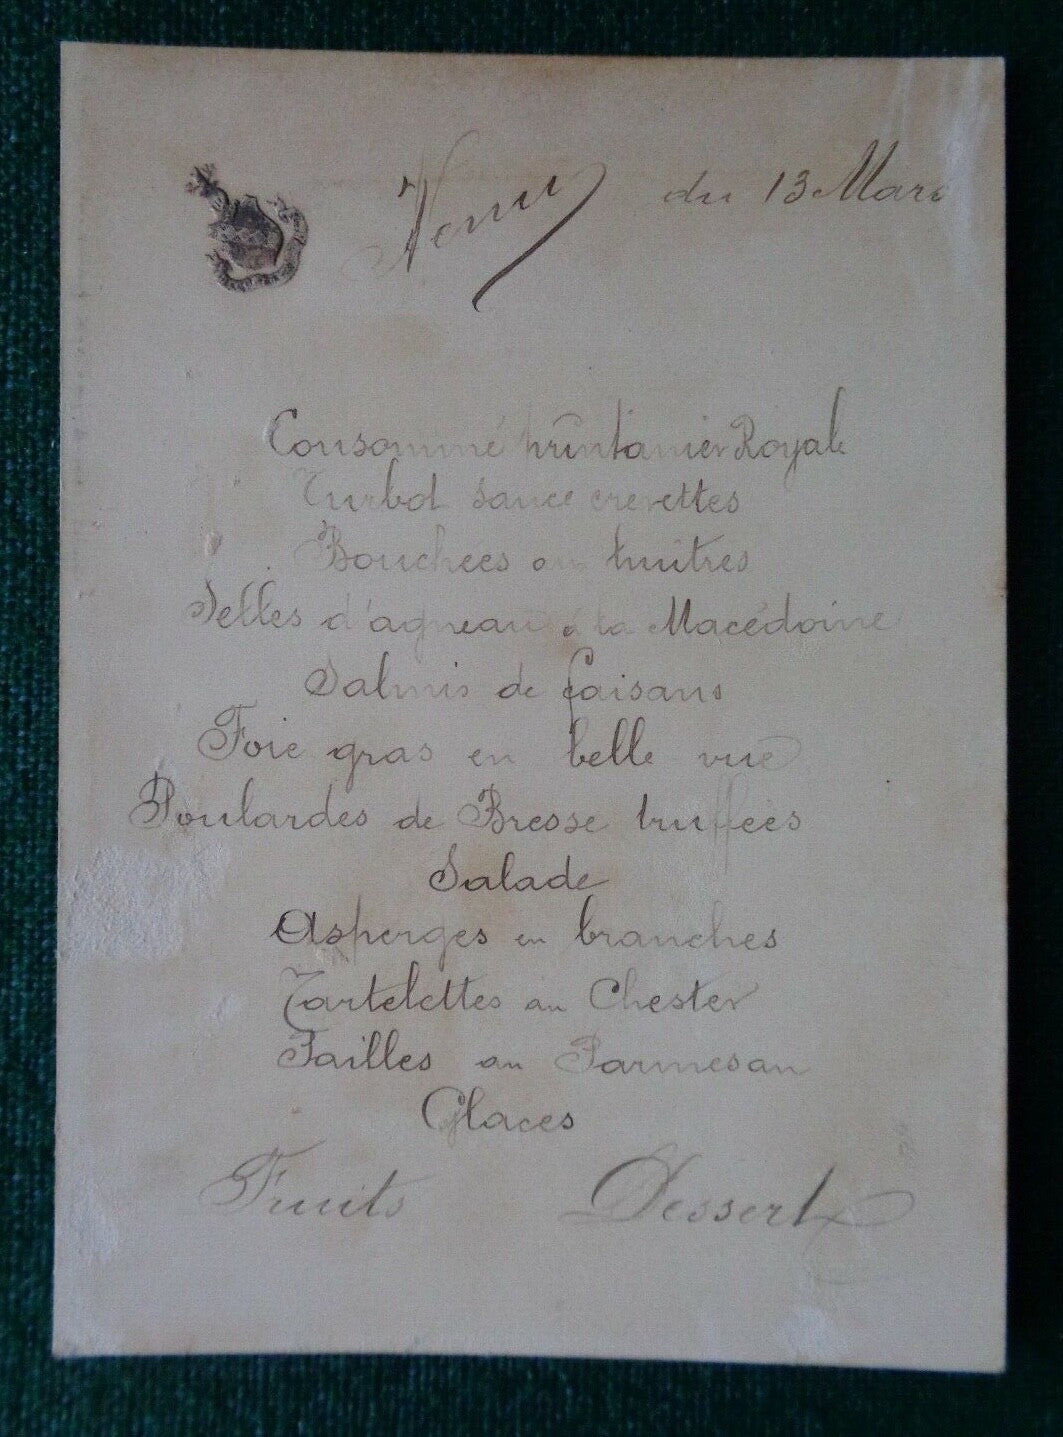 Menu du 13 Mars
Consommé printanier Royale
Turbot sauce crevettes
Bouchées aux huîtres
Selles d'agneau à la Macédoine
Salmis de faisans
Foie gras en belle vue
Poulardes de Bresse truffées
Salade
Asperges en branches
Tartelettes au Chester
Pailles au Parmesan
Glaces
Fruits Dessert